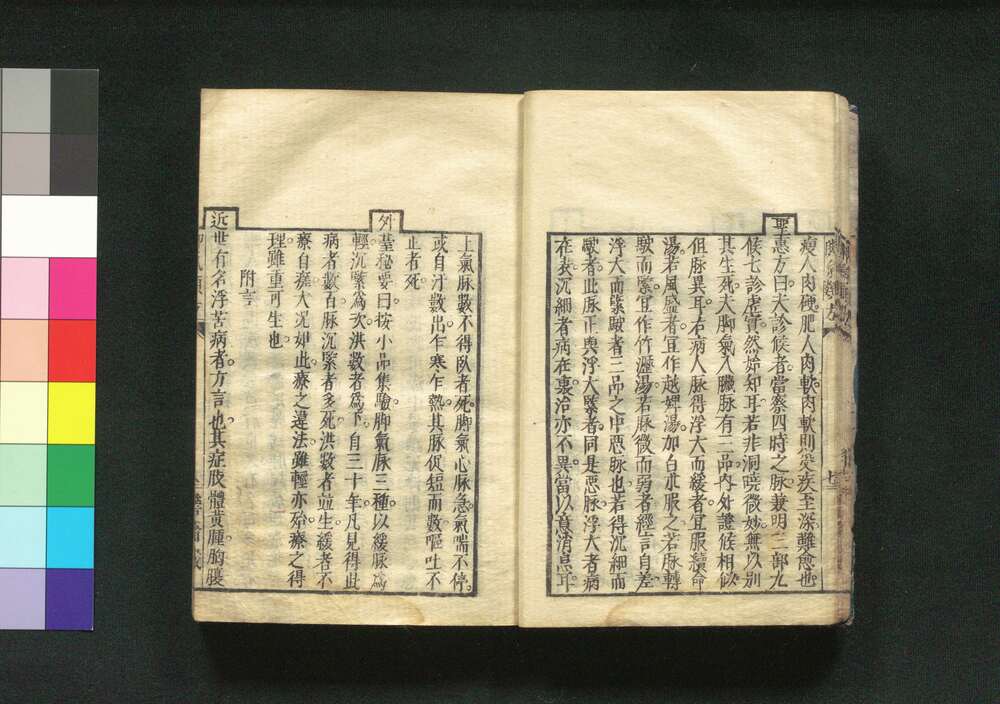 瘦人肉硬肥人肉軟肉軟則受疾至深難愈也
聖惠方曰夫診候者當察四時之脉兼明三部九
候七診虛實然始知耳若非洞曉微妙無以別
其生死夫脚氣入臟脉有三品內外證候相似
但脉異耳若病人脉得浮大而緩者宜服續命
湯若風盛者宜作越婢湯加白朮服之若脉轉
駛而緊宜作竹瀝湯若脉微而弱者經言自差
浮大而緊駛者三品之中惡脉也若得沉細而
駛者此脉正與浮大緊者同是惡脉浮大者病
在表沉細者病在裏治亦不異當以意消息耳
上氣脉數不得臥者死脚氣心脉急氣喘不停
或自汗數出乍寒乍熱其脉促短而數嘔吐不
止者死
外臺秘要曰按小品集驗脚氣脉三種以緩脉爲
輕沉緊爲次洪數者爲下自三十年凡見得此
病者數百脉沉緊者多死洪數者竝生緩者不
療自瘥大况如此療之違法雖輕亦殆療之得
理雖重可生也
附言
近世有名浮苦病者方言也其症肢體黃腫胸膓